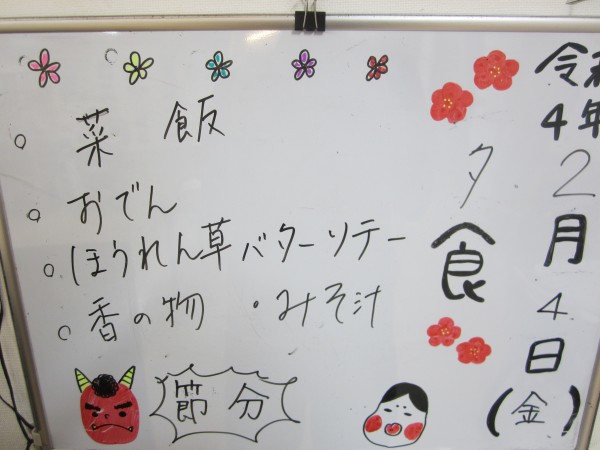 令和
4年
2月
4日
(金)
夕食
菜飯
おでん
ほうれん草バターソテー
香の物 ・みそ汁
節分